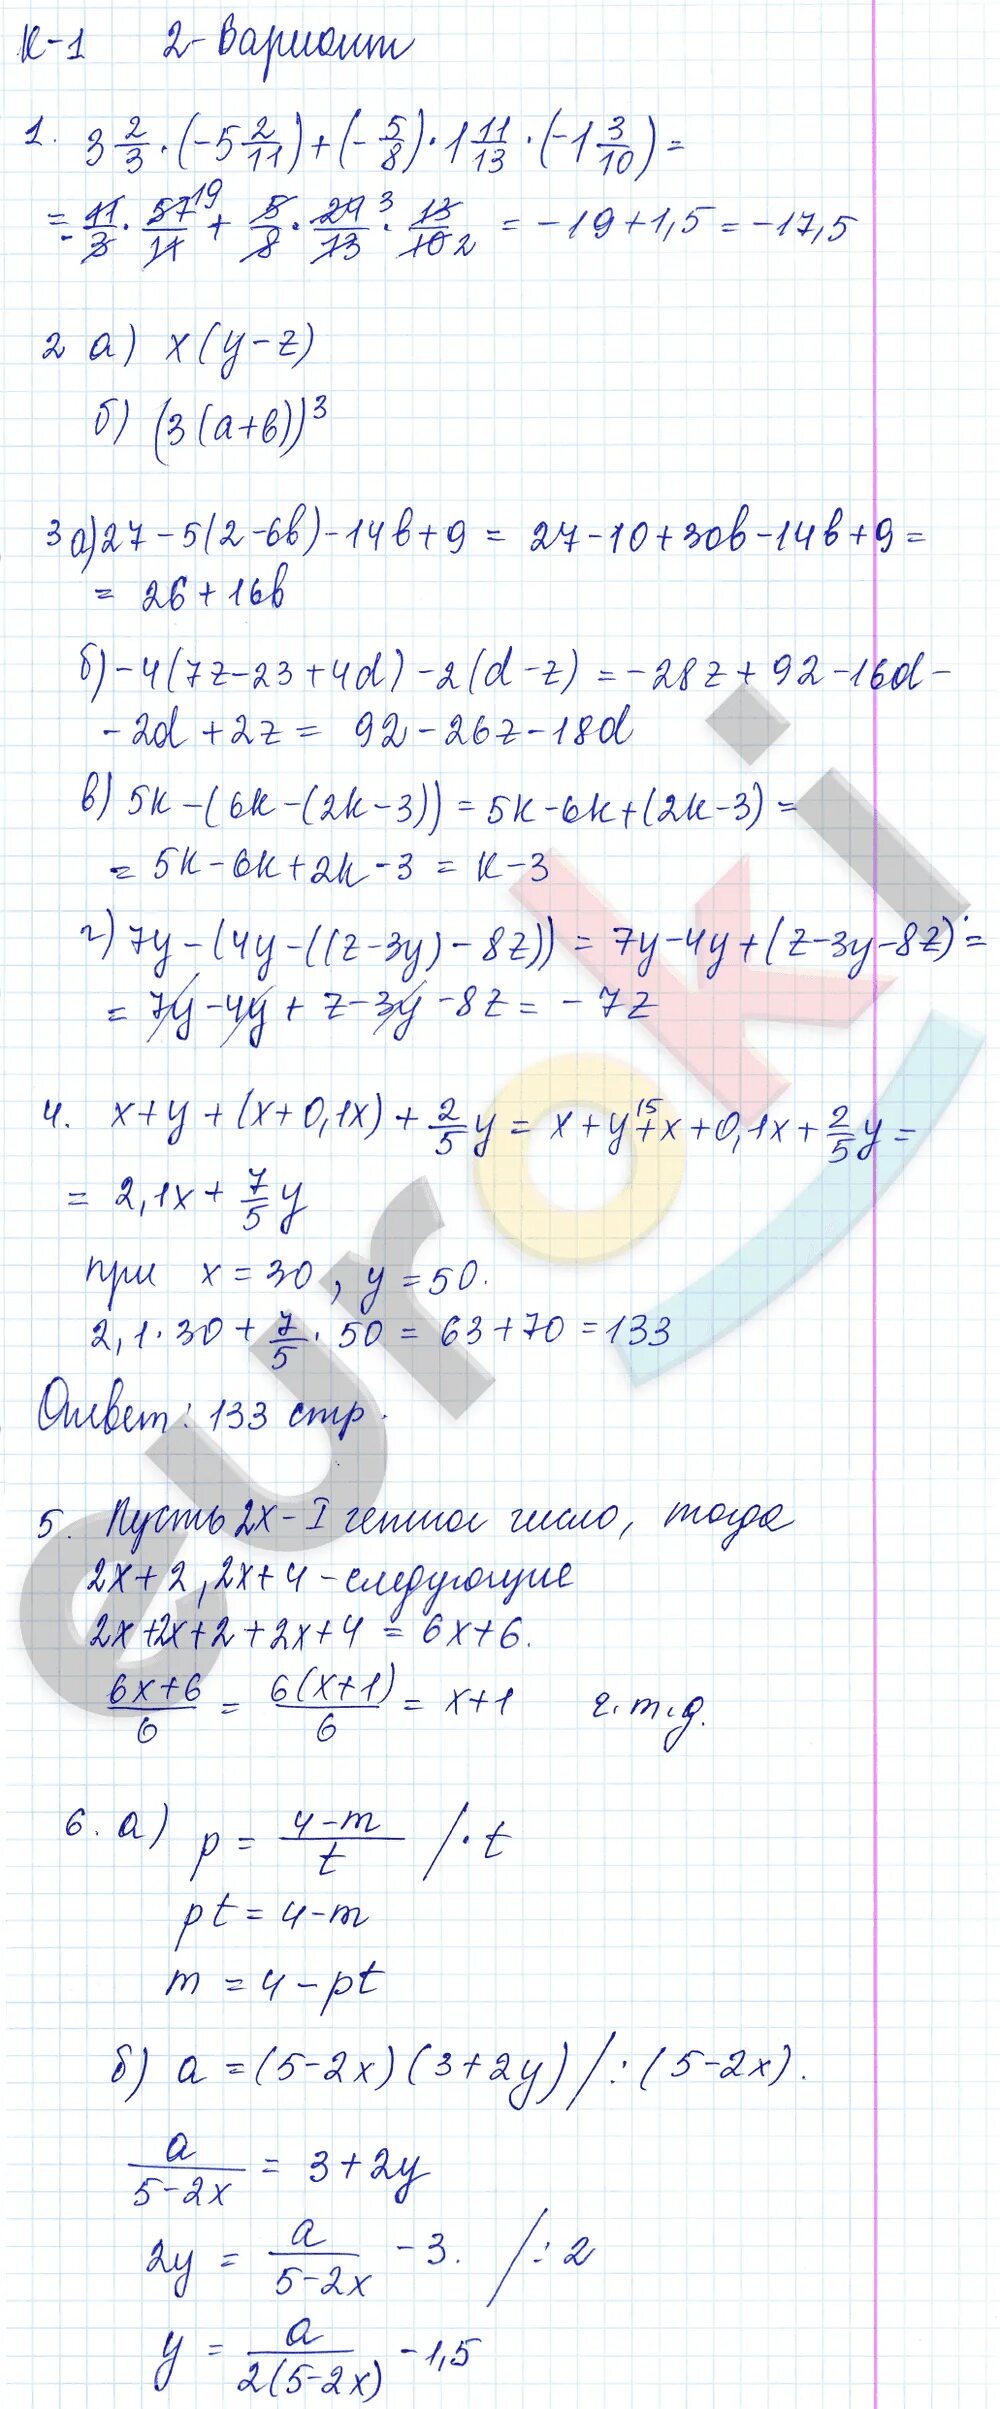 К-1 2-Вариант
1. 3 2/3 · (-5 2/11) + (-5/8) · 1 11/13 · (-1 3/10) =
= - 11/3 · 57/11 19 + 5/8 · 24/13 3 · 13/10 2 = -19 + 1,5 = -17,5
2 а) x(y-z)
б) (3(a+b))³
3 а) 27 - 5(2-6b) - 14b + 9 = 27 - 10 + 30b - 14b + 9 =
= 26 + 16b
б) -4(7z-23+4d) - 2(d-z) = -28z + 92 - 16d -
- 2d + 2z = 92 - 26z - 18d
в) 5k - (6k - (2k-3)) = 5k - 6k + (2k-3) =
= 5k - 6k + 2k - 3 = k - 3
г) 7y - (4y - ((z-3y) - 8z)) = 7y - 4y + (z-3y-8z) =
= 7y - 4y + z - 3y - 8z = -7z
4. x + y + (x+0,1x) + 2/5 y = x + y + 15 x + 0,1x + 2/5 y =
= 2,1x + 7/5 y
при x = 30, y = 50.
2,1 · 30 + 7/5 · 50 = 63 + 70 = 133
Ответ: 133 стр.
5. Пусть 2x - I четное число, тогда
2x+2, 2x+4 - следующие
2x + 2x + 2 + 2x + 4 = 6x + 6.
6x+6/6 = 6(x+1)/6 = x+1 ч.т.д.
6. а) p = 4-m/t /·t
pt = 4-m
m = 4-pt
б) a = (5-2x)(3+2y) /:(5-2x).
a/5-2x = 3+2y
2y = a/5-2x - 3. /:2
y = a/2(5-2x) - 1,5
euroki